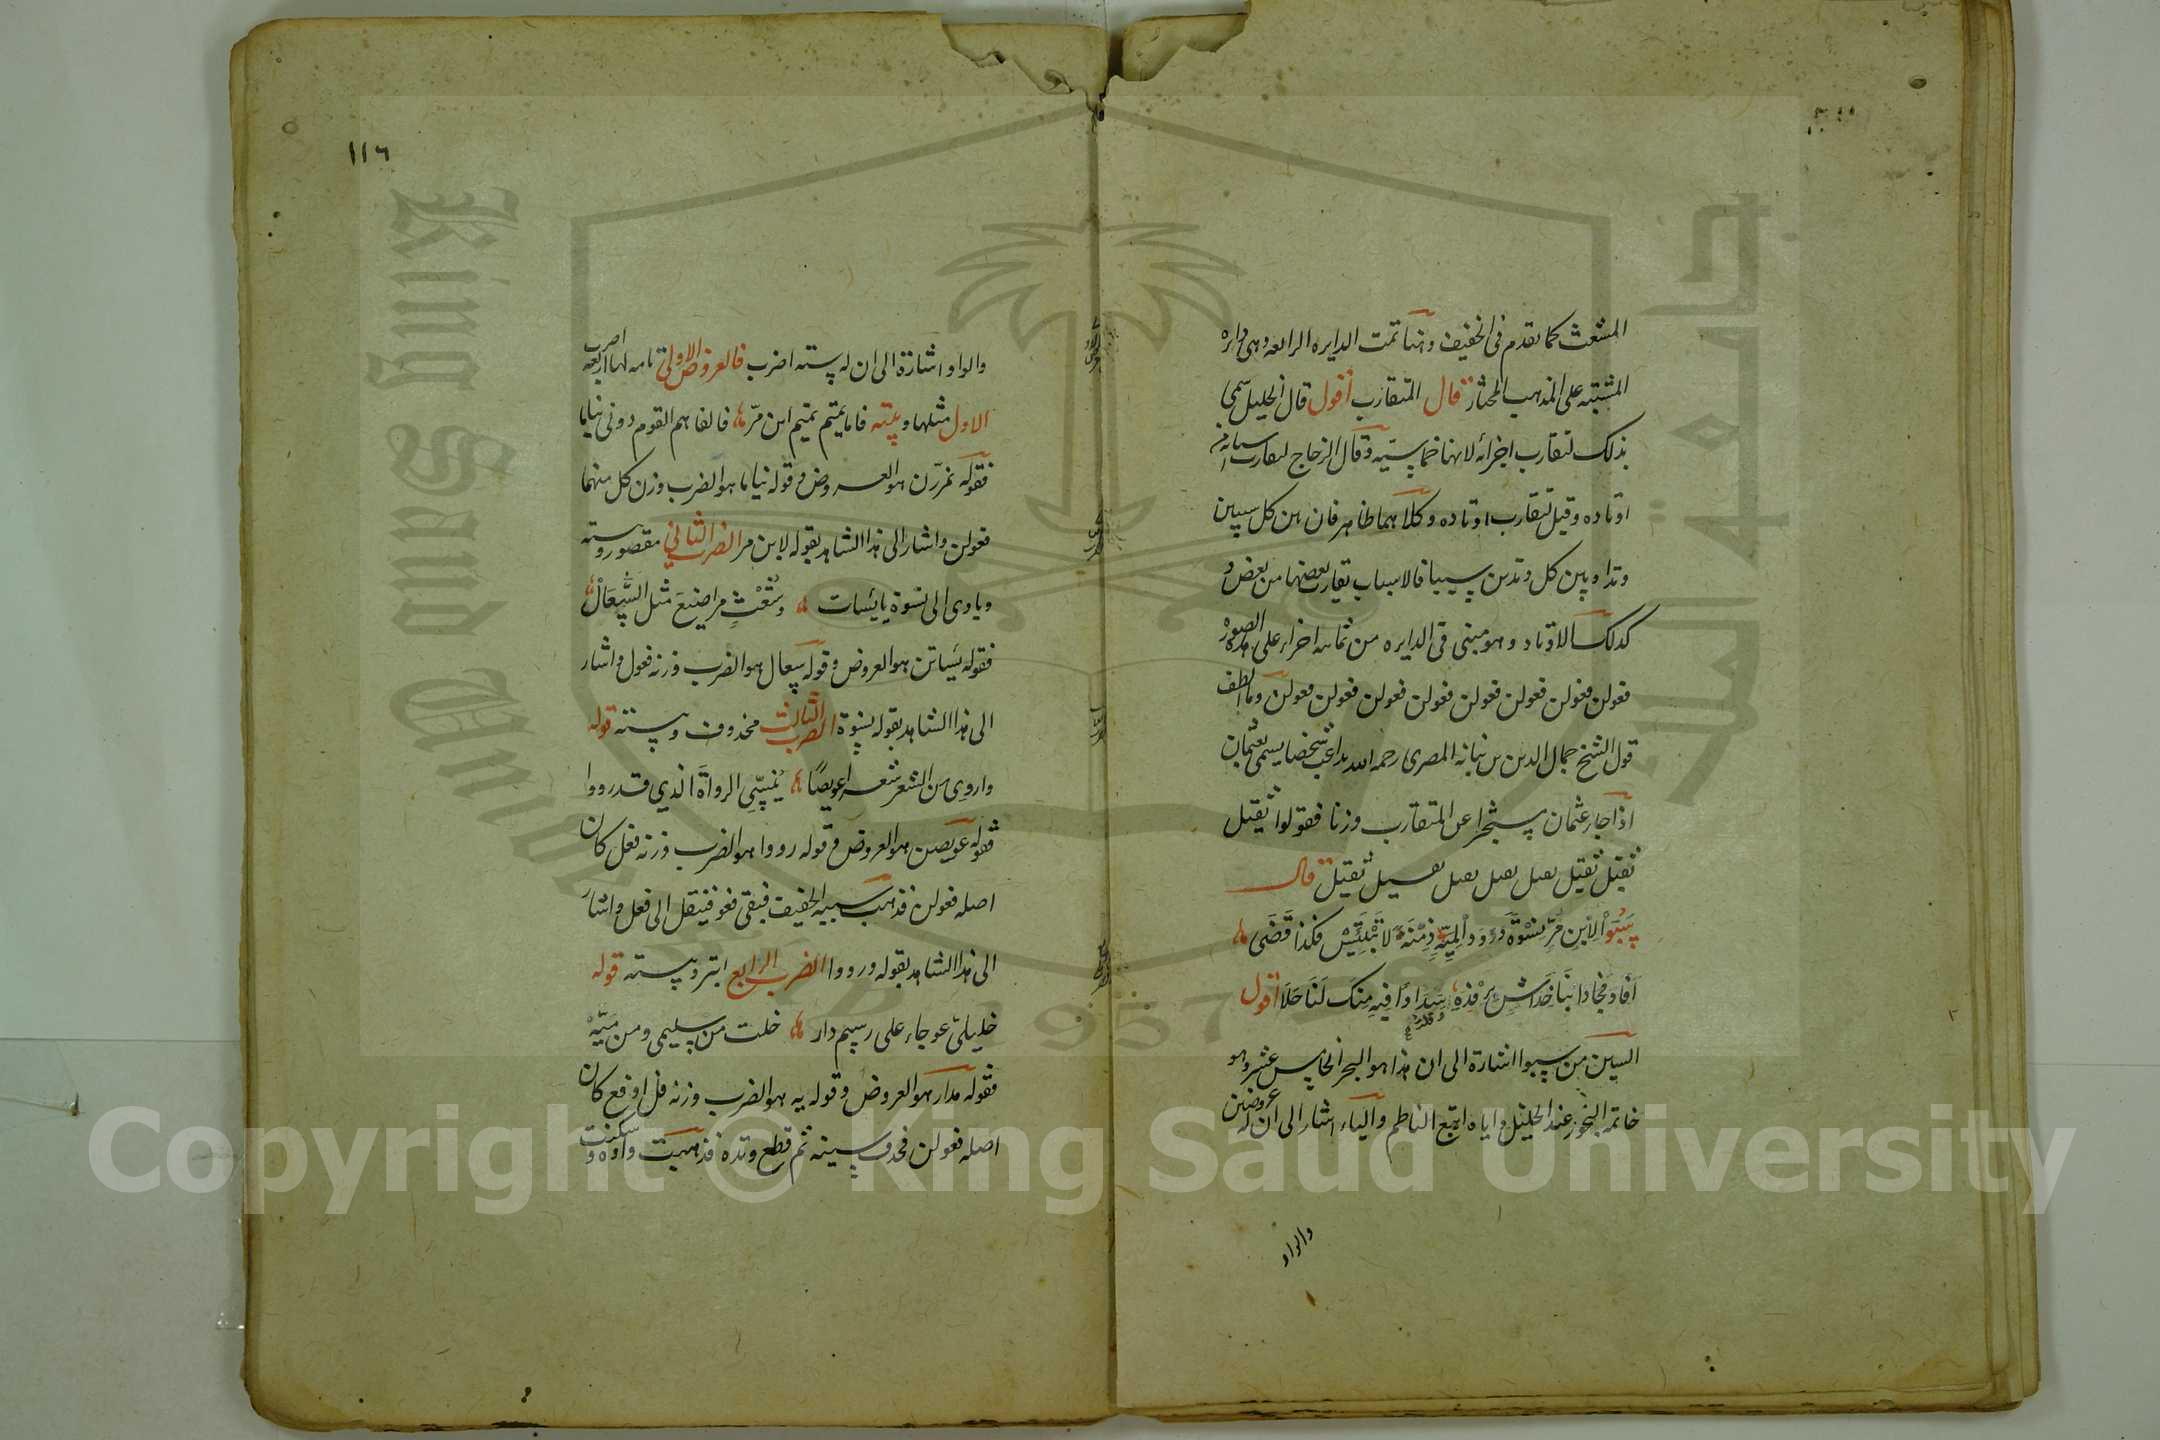 المشعث كما تقدم فى الخفيف وهنا تمت الدايره الرابعه وهى دايره
المشتبه على المذهب المختار قال المتقارب أقول قال الخليل سمى
بذلك لتقارب اجزائه لانها خماسيه وقال الزجاج لتقارب اسبابه من
اوتاده وقيل لتقارب اوتاده وكلاهما ظاهر فان بين كل سببين
وتدا وبين كل وتدين سببا فالاسباب يقارب بعضها من بعض و
كذلك الاوتاد وهو مبنى فى الدايره من ثمانيه اجزاء على هذه الصوره
فعولن فعولن فعولن فعولن فعولن فعولن فعولن فعولن وما الطف
قول الشيخ جمال الدين بن نباته المصرى رحمه الله يداعب شخصا يسمى بعثمان
اذا جار عثمان مستخبرا عن المتقارب وزنا فقولوا ثقيل
ثقيل ثقيل ثقيل ثقيل ثقيل ثقيل ثقيل قال
سَبَوْا لِابْنِ مُرٍّ نِسْوَةً وَرَوَوا لِمَيَّةٍ دِمْنَةً لا تَبْتَئِسْ فكذا قَضَى
أفاد فجادا بنا خداش برفده سدادا فيه منك لنا حلا أقول
السين من سبوا اشارة الى ان هذا هو البحر الخامس عشر وهو
خاتمة البحور عند الخليل واياه اتبع الناظم والياء اشار الى ان له عروضين
والواو
١١٦
والواو اشارة الى ان له سته اضرب فالعروض الاولى تامه لها اربعه اضرب
الاول مثلها وبيته فاما تميم تميم ابن مرّ فالفاهم القوم روبى نياما
فقوله نمررن هو العروض وقوله نياما هو الضرب وزن كل منهما
فعولن واشار الى هذا الشاهد بقوله لابن مر الضرب الثاني مقصور وبيته
وياوى الى نسوة يايسات وشُعْثٍ مراضيعَ مثل السَّعَالْ
فقوله يساتن هو العروض وقوله سعال هو الضرب وزنه فعول واشار
الى هذا الشاهد بقوله نسوة الضرب الثالث محذوف وبيته قوله
واروى من الشعر شعرا عويصًا يُنَسِّي الرواةَ الذي قد رووا
فقوله عويصن هو العروض وقوله رووا هو الضرب وزنه فعل كان
اصله فعولن فذهب سببه الخفيف فبقى فعو فينقل الى فعل واشار
الى هذا الشاهد بقوله ورووا الضرب الرابع ابتر وبيته قوله
خليلىّ عوجاء على رسم دار خلت من سليمى ومن مَيَّهْ
فقوله مدار هو العروض وقوله يه هو الضرب وزنه فل اوفع كان
اصله فعولن فحذف سببه ثم قطع وتده فذهبت واوه وسكنت